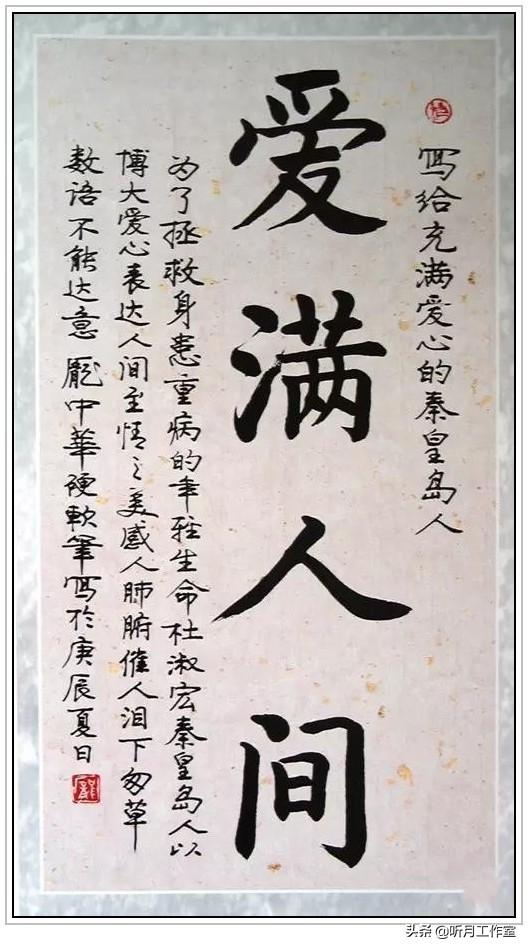 冩给充满爱心的秦皇岛人
爱满人间
为了拯救身患重病的年轻生命杜淑宏秦皇岛人以
博大爱心表达人间至情之美感人肺腑催人泪下匆草
数语不能达意 龐中華硬軟筆冩於庚辰夏日
头条 @听月工作室